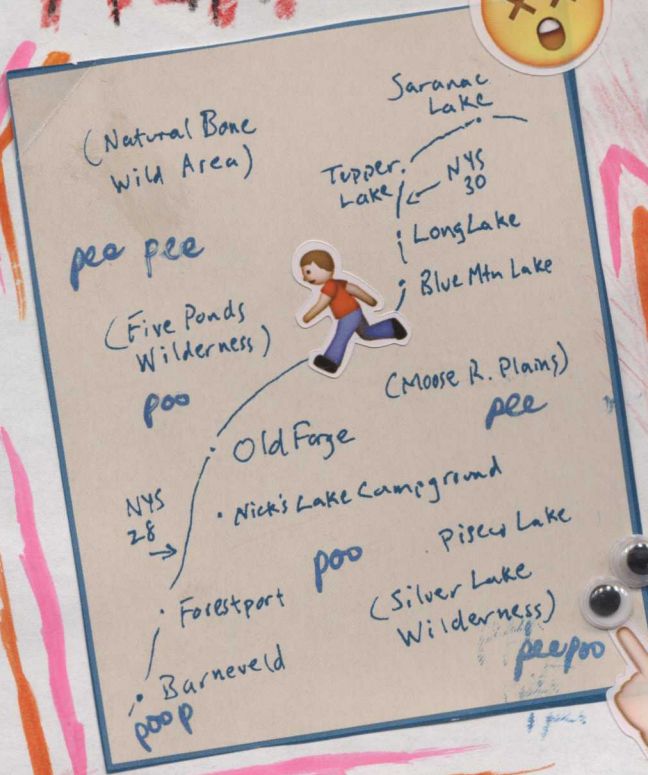 Saranac
Lake
(Natural Bone
Wild Area)
Tupper
Lake
NYS
30
Long Lake
pee pee
Blue Mtn Lake
(Five Ponds
Wilderness)
(Moose R. Plains)
poo
pee
Old Forge
Nick's Lake Campground
NYS
28
Piseco Lake
poo
Forestport
(Silver Lake
Wilderness)
peepoo
Barneveld
poop